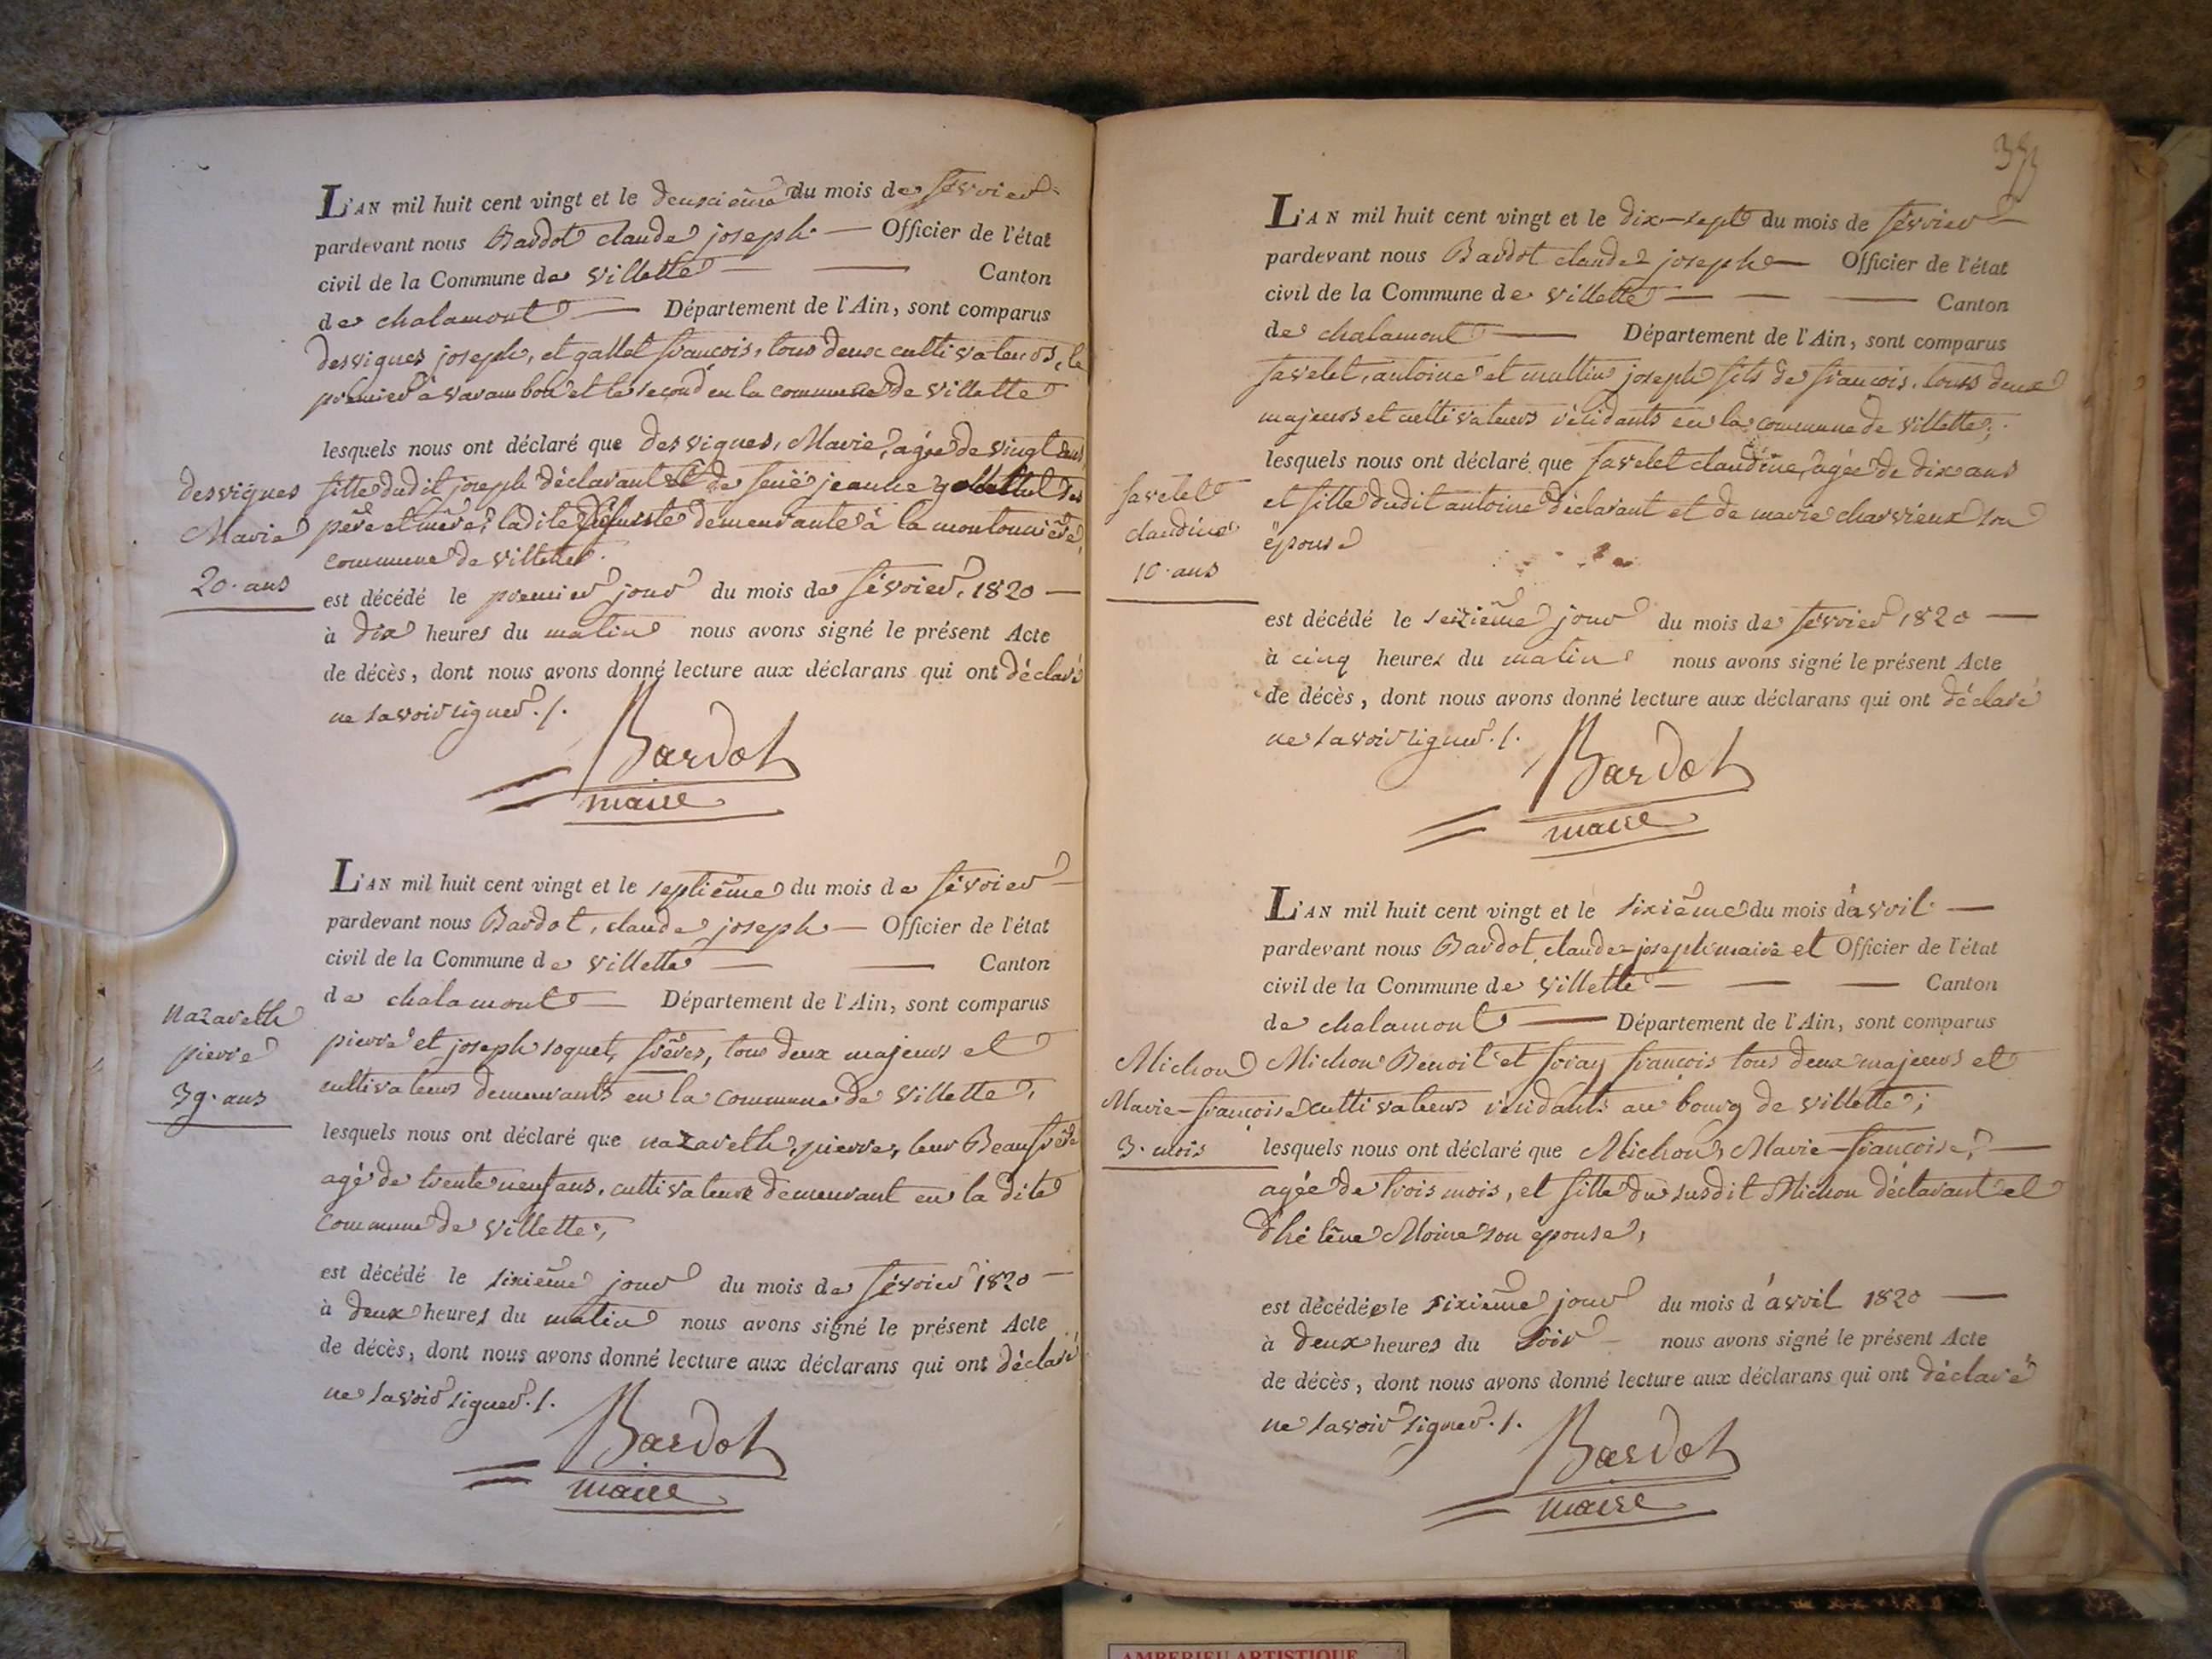 L'AN mil huit cent vingt et le deuxième du mois de février
pardevant nous Bardot claude joseph — Officier de l'état
civil de la Commune de villette — — Canton
de chalamont — Département de l'Ain, sont comparus
desvignes joseph, et gallet françois, tous deux cultivateurs, le
premier à varambon et le second en la commune de villette
lesquels nous ont déclaré que desvignes, Marie, agée de vingt ans
desvignes
Marie
20. ans
fille dudit joseph déclarant et de feüe jeanne
père et mère, ladite défunte demeurante à la montonnière,
commune de villette.
est décédé le premier jour du mois de février, 1820 —
à dix heures du matin nous avons signé le présent Acte
de décès, dont nous avons donné lecture aux déclarans qui ont déclaré
ne savoir signer ./.
Bardot
maire
L'AN mil huit cent vingt et le septième du mois de février —
pardevant nous Bardot, claude joseph — Officier de l'état
civil de la Commune de villette — — Canton
de chalamont — Département de l'Ain, sont comparus
nazareth
pierre
39. ans
pierre et joseph soquet, frères, tous deux majeurs et
cultivateurs demeurants en la commune de villette,
lesquels nous ont déclaré que nazareth, pierre, leur Beaufrère
agé de trente neuf ans, cultivateur demeurant en la dite
commune de villette,
est décédé le sixième jour du mois de février 1820 —
à deux heures du matin nous avons signé le présent Acte
de décès, dont nous avons donné lecture aux déclarans qui ont déclaré
ne savoir signer ./.
Bardot
maire
L'AN mil huit cent vingt et le dix-sept du mois de février —
pardevant nous Bardot claude joseph — Officier de l'état
civil de la Commune de villette — — — Canton
de chalamont — Département de l'Ain, sont comparus
favelet, antoine et multin joseph fils de françois, tous deux
majeurs et cultivateurs résidants en la commune de villette,
lesquels nous ont déclaré que favelet claudine, agée de dix ans
favelet
claudine
10. ans
et fille dudit antoine déclarant et de marie charvieux son
épouse
est décédé le seizième jour du mois de février 1820 —
à cinq heures du matin nous avons signé le présent Acte
de décès, dont nous avons donné lecture aux déclarans qui ont déclaré
ne savoir signer ./.
Bardot
maire
L'AN mil huit cent vingt et le sixième du mois d'avril —
pardevant nous Bardot claude-joseph maire et Officier de l'état
civil de la Commune de villette — — — Canton
de chalamont — Département de l'Ain, sont comparus
Michon
Marie-françoise
3. mois
Michon Benoit et foray françois tous deux majeurs et
cultivateurs résidants au bourg de villette;
lesquels nous ont déclaré que Michon, Marie-françoise, —
agée de trois mois, et fille du susdit Michon déclarant et
d'hélène Moine son épouse,
est décédée le sixième jour du mois d'avril 1820 —
à deux heures du soir — nous avons signé le présent Acte
de décès, dont nous avons donné lecture aux déclarans qui ont déclaré
ne savoir signer ./.
Bardot
maire
AMBERIEU ARTISTIQUE